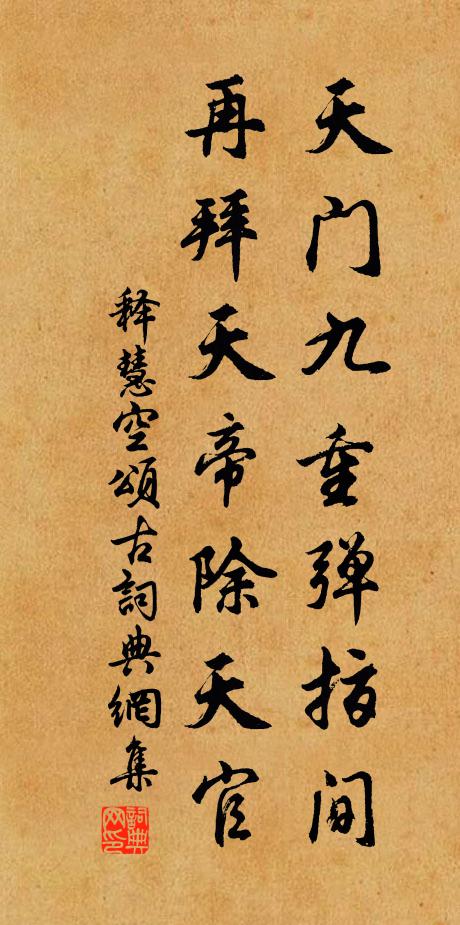 天门九重弹指间
再拜天帝除天官
释慧空頌古詞典網集
詞典网印